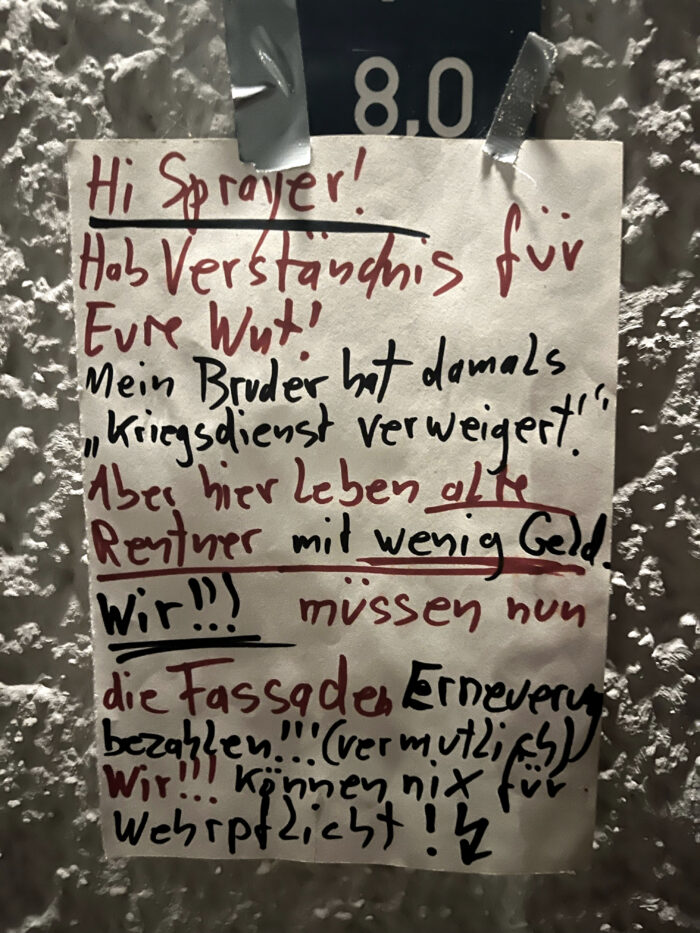 8,0
Hi Sprayer!
Hab Verständnis für
Eure Wut!
Mein Bruder hat damals
„Kriegsdienst verweigert!“
Aber hier leben alte
Rentner mit wenig Geld.
Wir!!! müssen nun
die Fassaden Erneuerung
bezahlen!!! (vermutlich)
Wir!!! können nix für
Wehrpflicht!